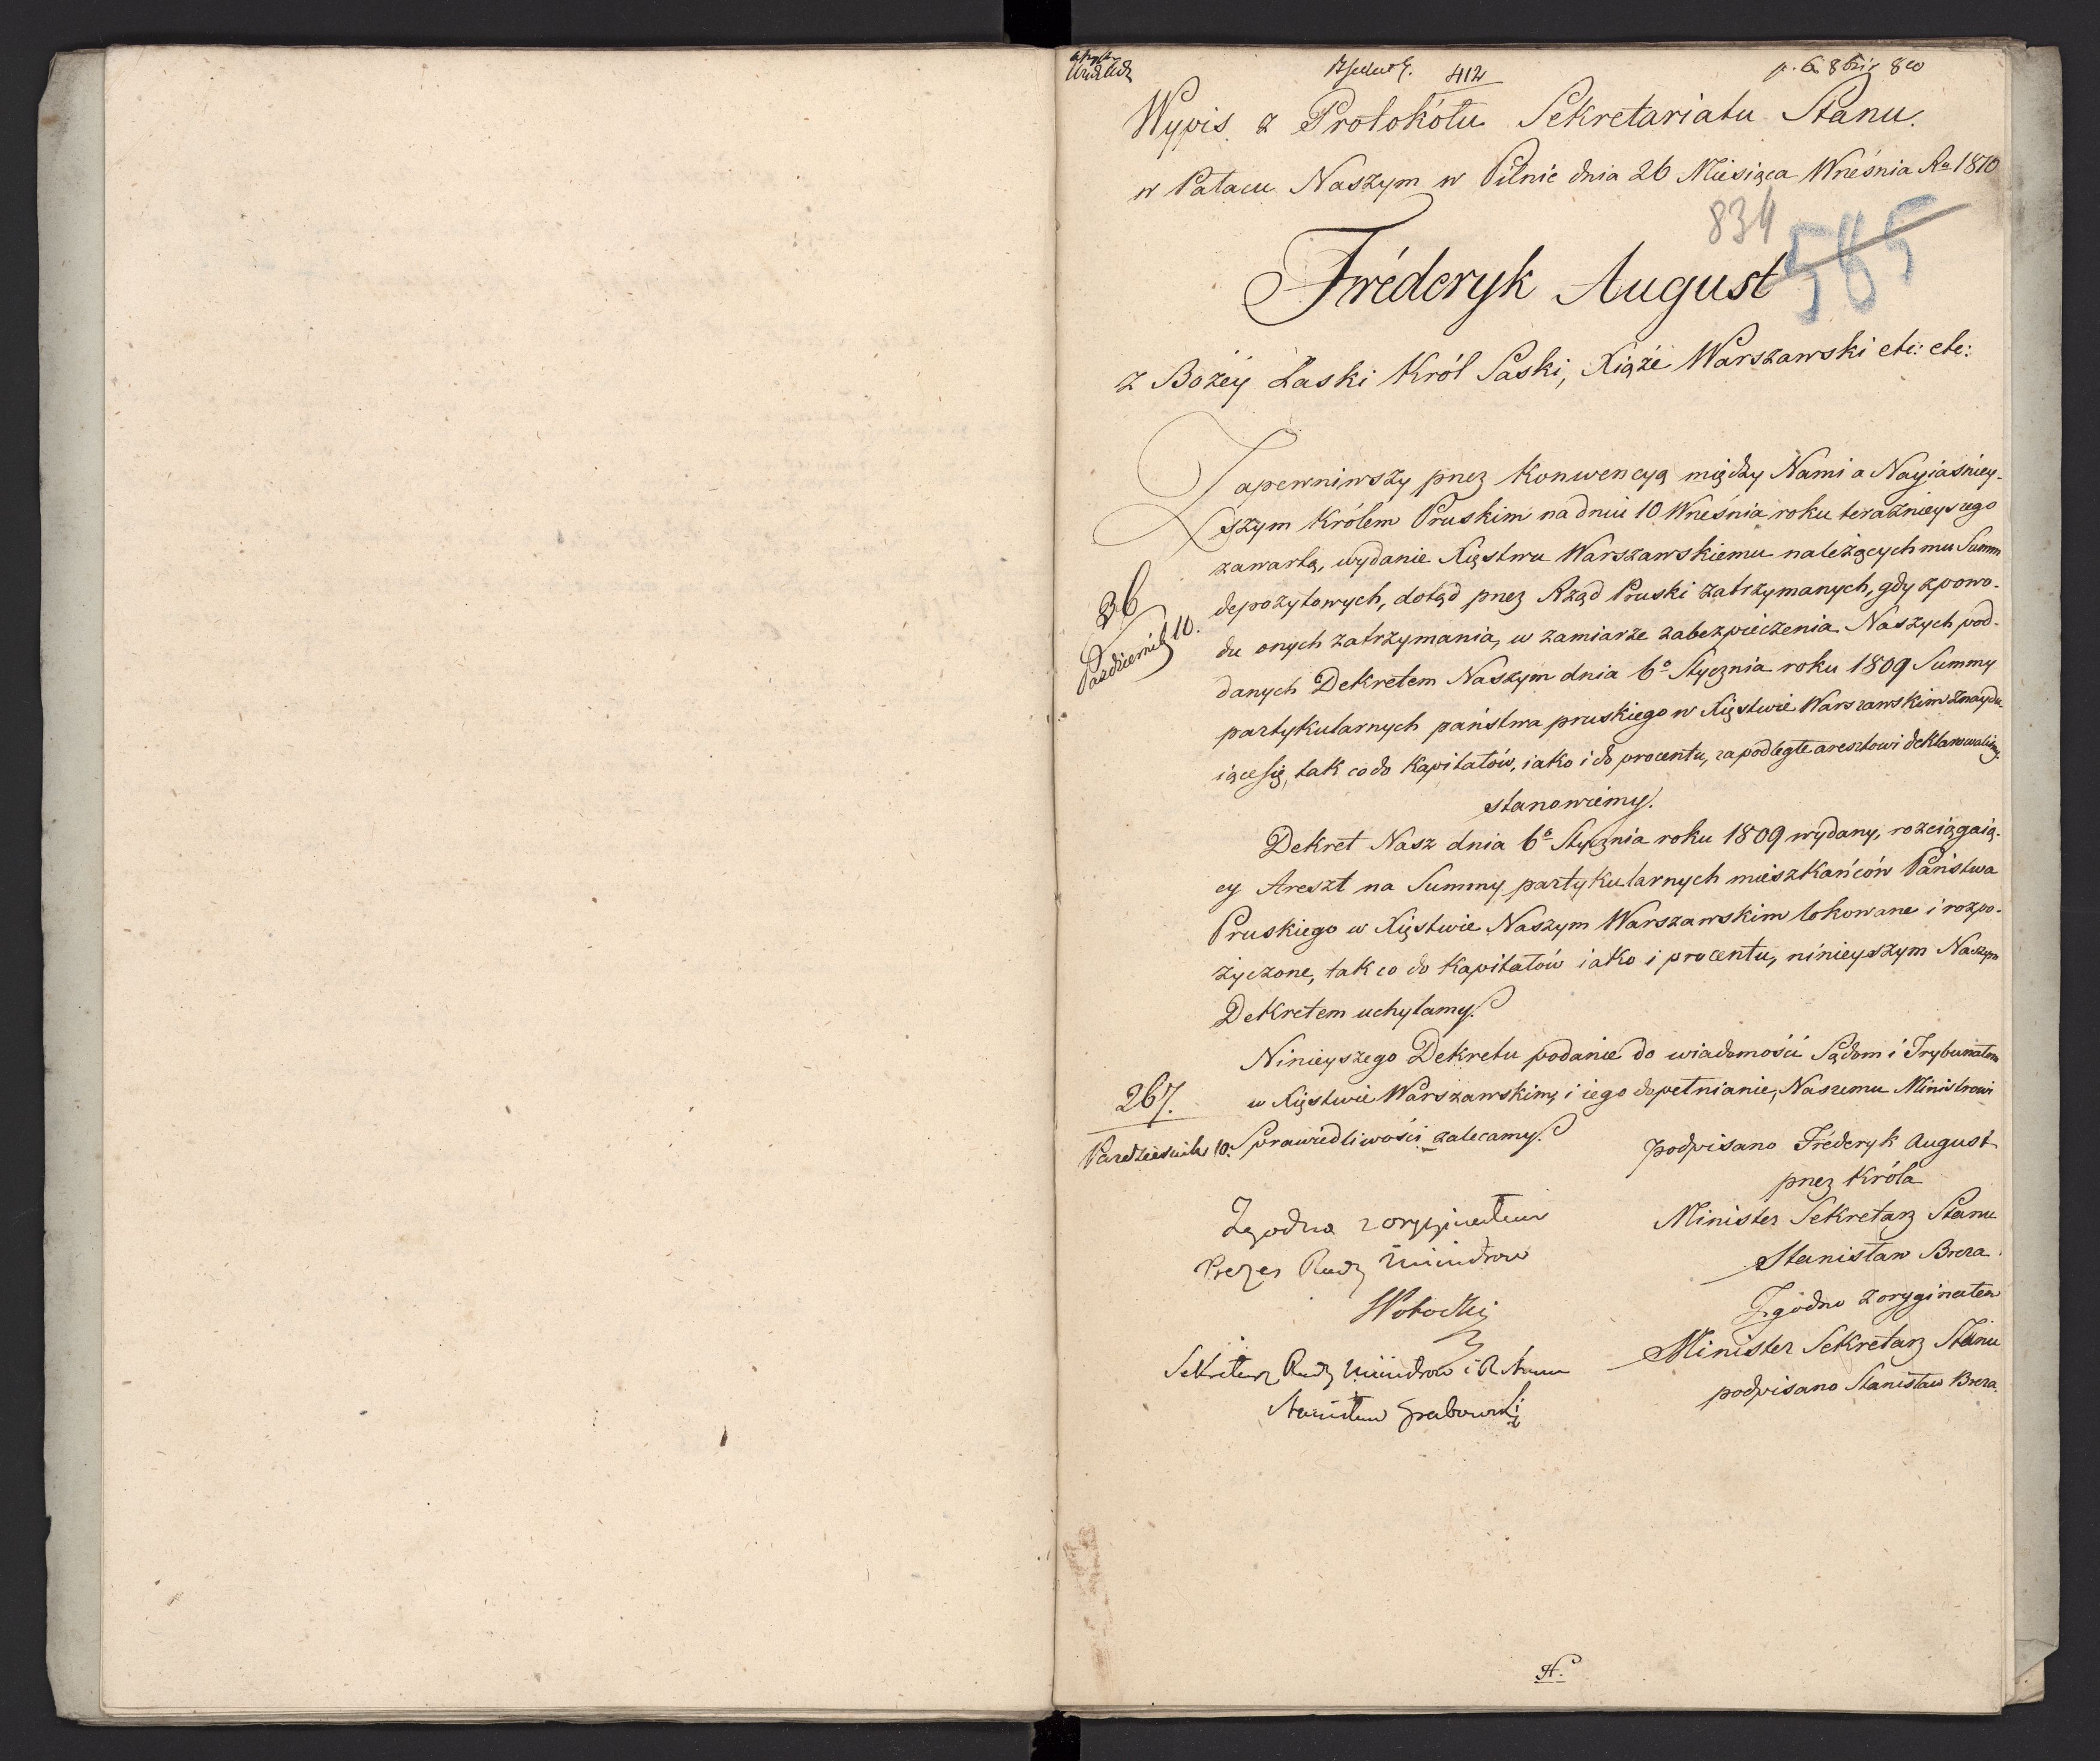 412
Wypis z Protokółu Sekretariatu Stanu.
w Pałacu Naszym w Pilnie dnia 26 Miesiąca Września Ru 1810
834
565
Fréderyk August
z Bożéy Łaski Król Saski, Xiąże Warszawski etc: etc:
Zapewniwszy przez Konwencyą między Nami a Nayiaśniey-
szym Królem Pruskim na dniu 10 Września roku teraźnieyszego
zawartą, wydanie Xięstwu Warszawskiemu należących mu Summ
depozytowych, dotąd przez Rząd Pruski zatrzymanych, gdy z powo-
du onych zatrzymania, w zamiarze zabezpieczenia Naszych pod-
danych Dekretem Naszym dnia 6o Stycznia roku 1809 Summy
partykularnych państwa pruskiego w Xięstwie Warszawskim znaydu-
iące się, tak co do Kapitałów, iako i do procentu, za podległe aresztowi deklarowaliśmy,
36
Październik 10.
stanowiemy.
Dekret Nasz dnia 6o Stycznia roku 1809 wydany, rozciągaią-
cy Areszt na Summy partykularnych mieszkańców Państwa
Pruskiego w Xięstwie Naszym Warszawskim lokowane i rozpo-
życzone, tak co do Kapitałów iako i procentu, ninieyszym Naszym
Dekretem uchylamy.
Ninieyszego Dekretu podanie do wiadomości Sądom i Trybunałom
w Xięstwie Warszawskim, i iego dopełnianie, Naszemu Ministrowi
Sprawiedliwości zalecamy.
267.
Październik 10.
podpisano Fréderyk August
przez Króla
Minister Sekretarz Stanu
Stanisław Breza.
Zgodno z oryginałem
Minister Sekretarz Stanu
podpisano Stanisław Breza.
Zgodno z oryginałem
Prezes Rady Ministrow
Sekretarz Rady Ministrow i R Stanu
Stanisław Grabowski
H.